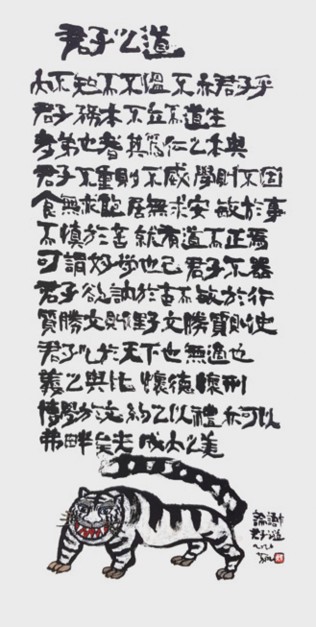 君子之道
人不知而不慍不亦君子乎
君子務本本立而道生
孝弟也者其為仁之本與
君子不重則不威學則不固
食無求飽居無求安敏於事
而慎於言就有道而正焉
可謂好學也已君子不器
君子欲訥於言而敏於行
質勝文則野文勝質則史
君子之於天下也無適也
義之與比懷德懷刑
博學於文約之以禮亦可以
弗畔矣夫成人之美
論語
君子道